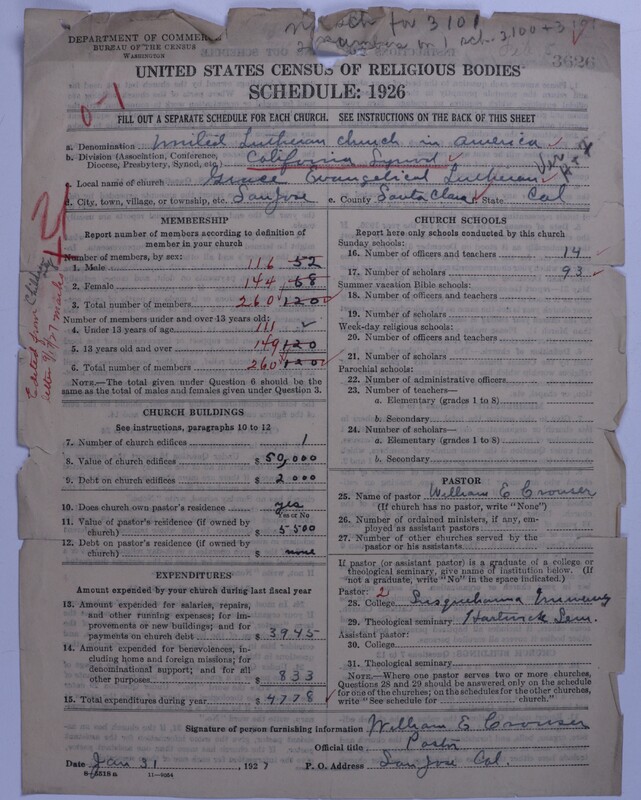 sch for 3101
sch. 3100 + 3101
DEPARTMENT OF COMMERCE
BUREAU OF THE CENSUS
WASHINGTON
3626
UNITED STATES CENSUS OF RELIGIOUS BODIES
SCHEDULE: 1926
0-1
FILL OUT A SEPARATE SCHEDULE FOR EACH CHURCH. SEE INSTRUCTIONS ON THE BACK OF THIS SHEET
a. Denomination United Lutheran church in america
b. Division (Association, Conference, Diocese, Presbytery, Synod, etc.) California Synod
c. Local name of church Grace Evangelical Lutheran
d. City, town, village, or township, etc. San Jose e. County Santa Clara f. State Cal
MEMBERSHIP
Report number of members according to definition of member in your church
Number of members, by sex:
1. Male 116 52
2. Female 144 68
3. Total number of members 260 120
Number of members under and over 13 years old:
4. Under 13 years of age 111
5. 13 years old and over 149 120
6. Total number of members 260 120
NOTE.—The total given under Question 6 should be the same as the total of males and females given under Question 3.
CHURCH BUILDINGS
See instructions, paragraphs 10 to 12
7. Number of church edifices 1
8. Value of church edifices $ 50,000
9. Debt on church edifices $ 2000
10. Does church own pastor's residence yes
Yes or No
11. Value of pastor's residence (if owned by church) $ 5500
12. Debt on pastor's residence (if owned by church) $ none
EXPENDITURES
Amount expended by your church during last fiscal year
13. Amount expended for salaries, repairs, and other running expenses; for improvements or new buildings; and for payments on church debt $ 3945
14. Amount expended for benevolences, including home and foreign missions; for denominational support; and for all other purposes $ 833
15. Total expenditures during year $ 4778
CHURCH SCHOOLS
Report here only schools conducted by this church
Sunday schools:
16. Number of officers and teachers 14
17. Number of scholars 93
Summer vacation Bible schools:
18. Number of officers and teachers
19. Number of scholars
Week-day religious schools:
20. Number of officers and teachers
21. Number of scholars
Parochial schools:
22. Number of administrative officers
23. Number of teachers—
a. Elementary (grades 1 to 8)
b. Secondary
24. Number of scholars—
a. Elementary (grades 1 to 8)
b. Secondary
PASTOR
25. Name of pastor William E Crouser
(If church has no pastor, write "None")
26. Number of ordained ministers, if any, employed as assistant pastors
27. Number of other churches served by the pastor or his assistants
If pastor (or assistant pastor) is a graduate of a college or theological seminary, give name of institution below. (If not a graduate, write "No" in the space indicated.)
Pastor: 2
28. College Susquehanna
29. Theological seminary Hartwick Sem.
Assistant pastor:
30. College
31. Theological seminary
NOTE.—Where one pastor serves two or more churches, Questions 28 and 29 should be answered only on the schedule for one of the churches; on the schedules for the other churches, write "See schedule for church."
Signature of person furnishing information William E Crouser
Official title Pastor
Date Jan 31, 1927 P. O. Address San Jose Cal.
8-5518a 11-9064